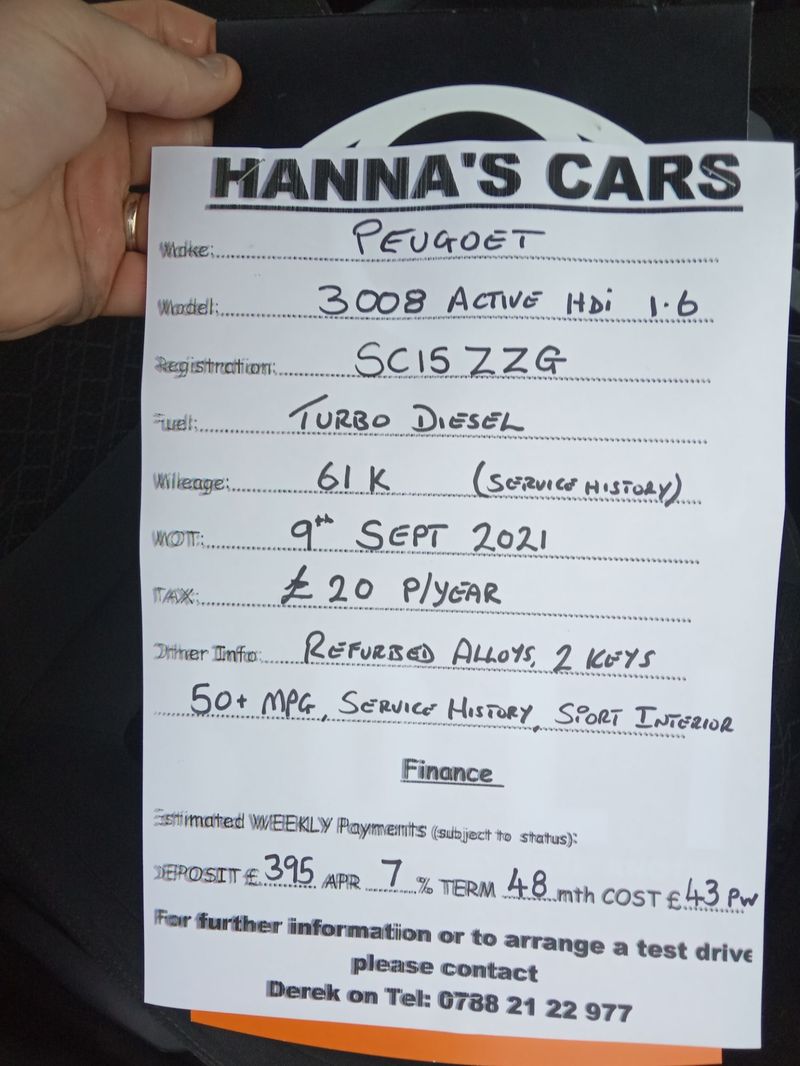 HANNA'S CARS
Make: PEUGOET
Model: 3008 ACTIVE HDi 1.6
Registration: SC15 ZZG
Fuel: TURBO DIESEL
Mileage: 61K (SERVICE HISTORY)
MOT: 9th SEPT 2021
TAX: £20 P/YEAR
Other Info: REFURBED ALLOYS, 2 KEYS
50+ MPG, SERVICE HISTORY, SPORT INTERIOR
Finance
Estimated WEEKLY Payments (subject to status):
DEPOSIT £395 APR 7 % TERM 48 mth COST £43 PW
For further information or to arrange a test drive
please contact
Derek on Tel: 0788 21 22 977